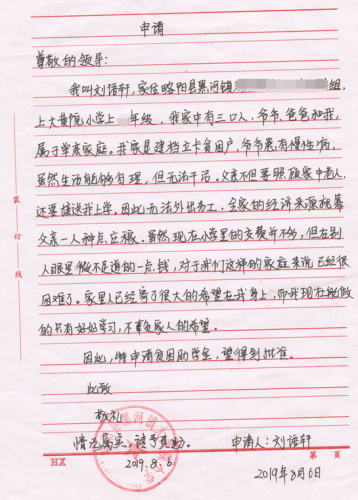 申请
尊敬的领导:
我叫刘语轩,家住略阳县黑河镇 组,
上大黄院小学上 年级,我家中有三口人,爷爷、爸爸和我,
属于单亲家庭。我家是建档立卡贫困户,爷爷患有慢性病,
虽然生活能够自理,但无法干活。父亲不但要照顾家中老人,
还要接送我上学,因此无法外出务工,全家的经济来源靠
父亲一人种点庄稼。虽然现在小学里的交费并不多,但在别
人眼里微不足道的一点钱,对于我们这样的家庭来说已经很
困难了。家里人已经寄了很大的希望在我身上,而我现在能做
的只有好好学习,不辜负家人的希望。
因此,特申请贫困助学金,望得到批准。
此致
敬礼
情况属实,请予资助。 申请人:刘语轩
2019.8.6 2019年8月6日
装订线
HX
第 页